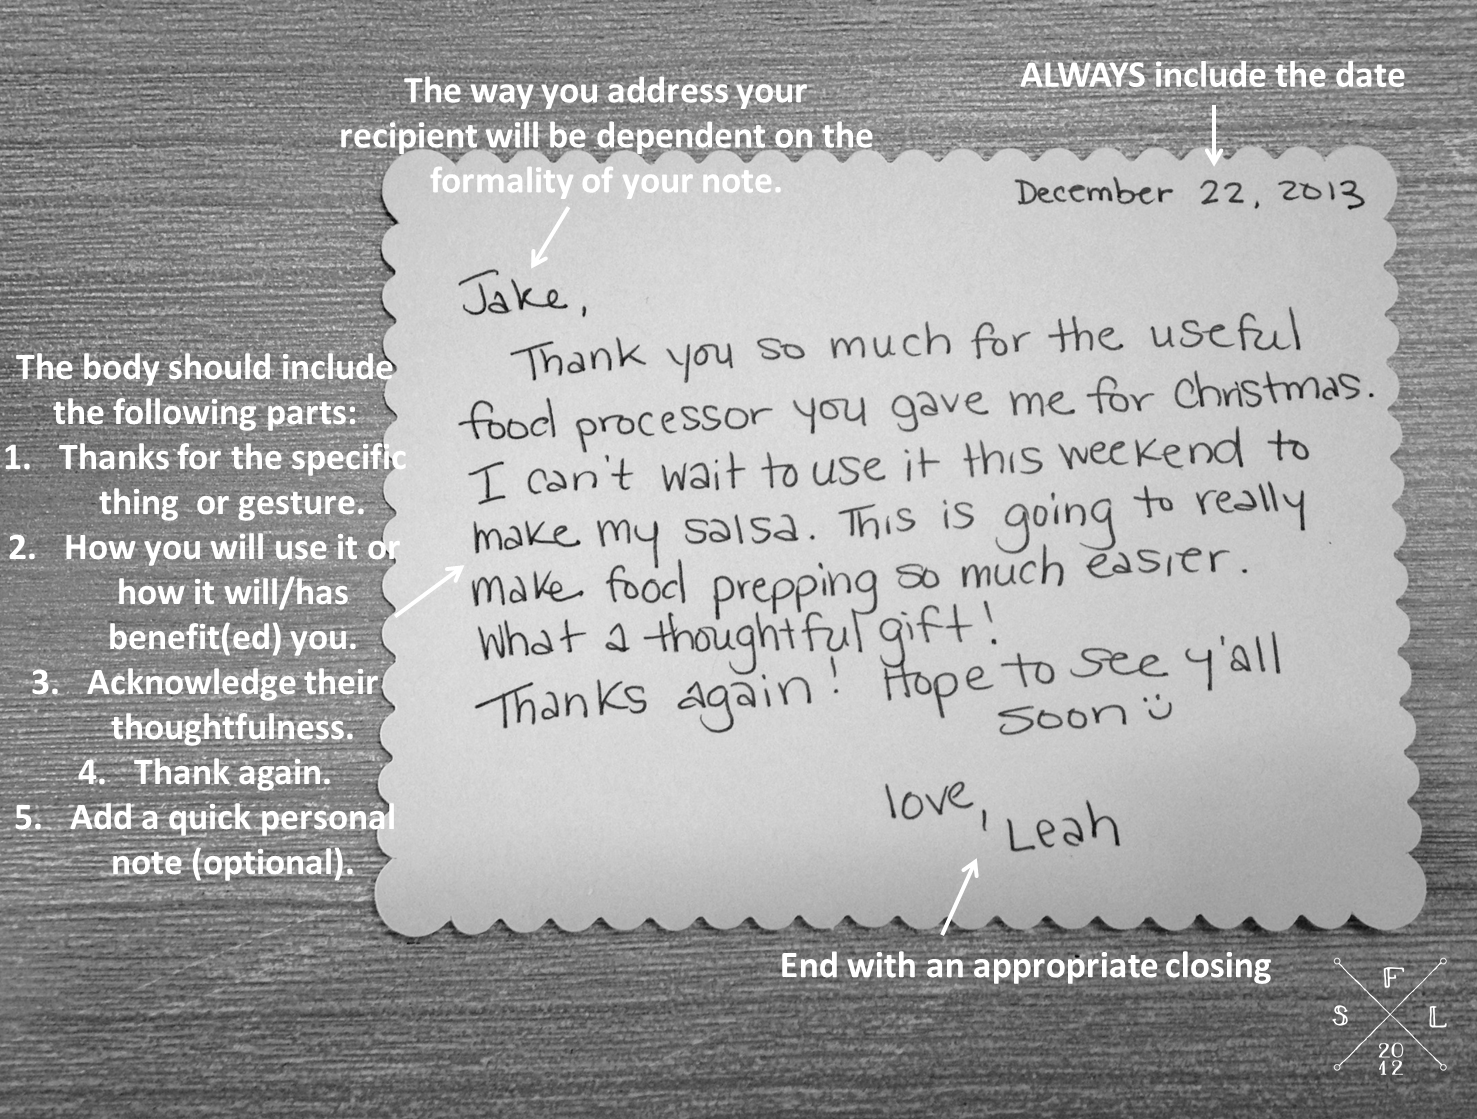 The way you address your
recipient will be dependent on the
formality of your note.
ALWAYS include the date
December 22, 2013
Jake,
Thank you so much for the useful
food processor you gave me for Christmas.
I can't wait to use it this weekend to
make my salsa. This is going to really
make food prepping so much easier.
What a thoughtful gift!
Thanks again! Hope to see y'all
soon
love,
Leah
The body should include
the following parts:
1. Thanks for the specific
thing or gesture.
2. How you will use it or
how it will/has
benefit(ed) you.
3. Acknowledge their
thoughtfulness.
4. Thank again.
5. Add a quick personal
note (optional).
End with an appropriate closing
F
S L
20
12